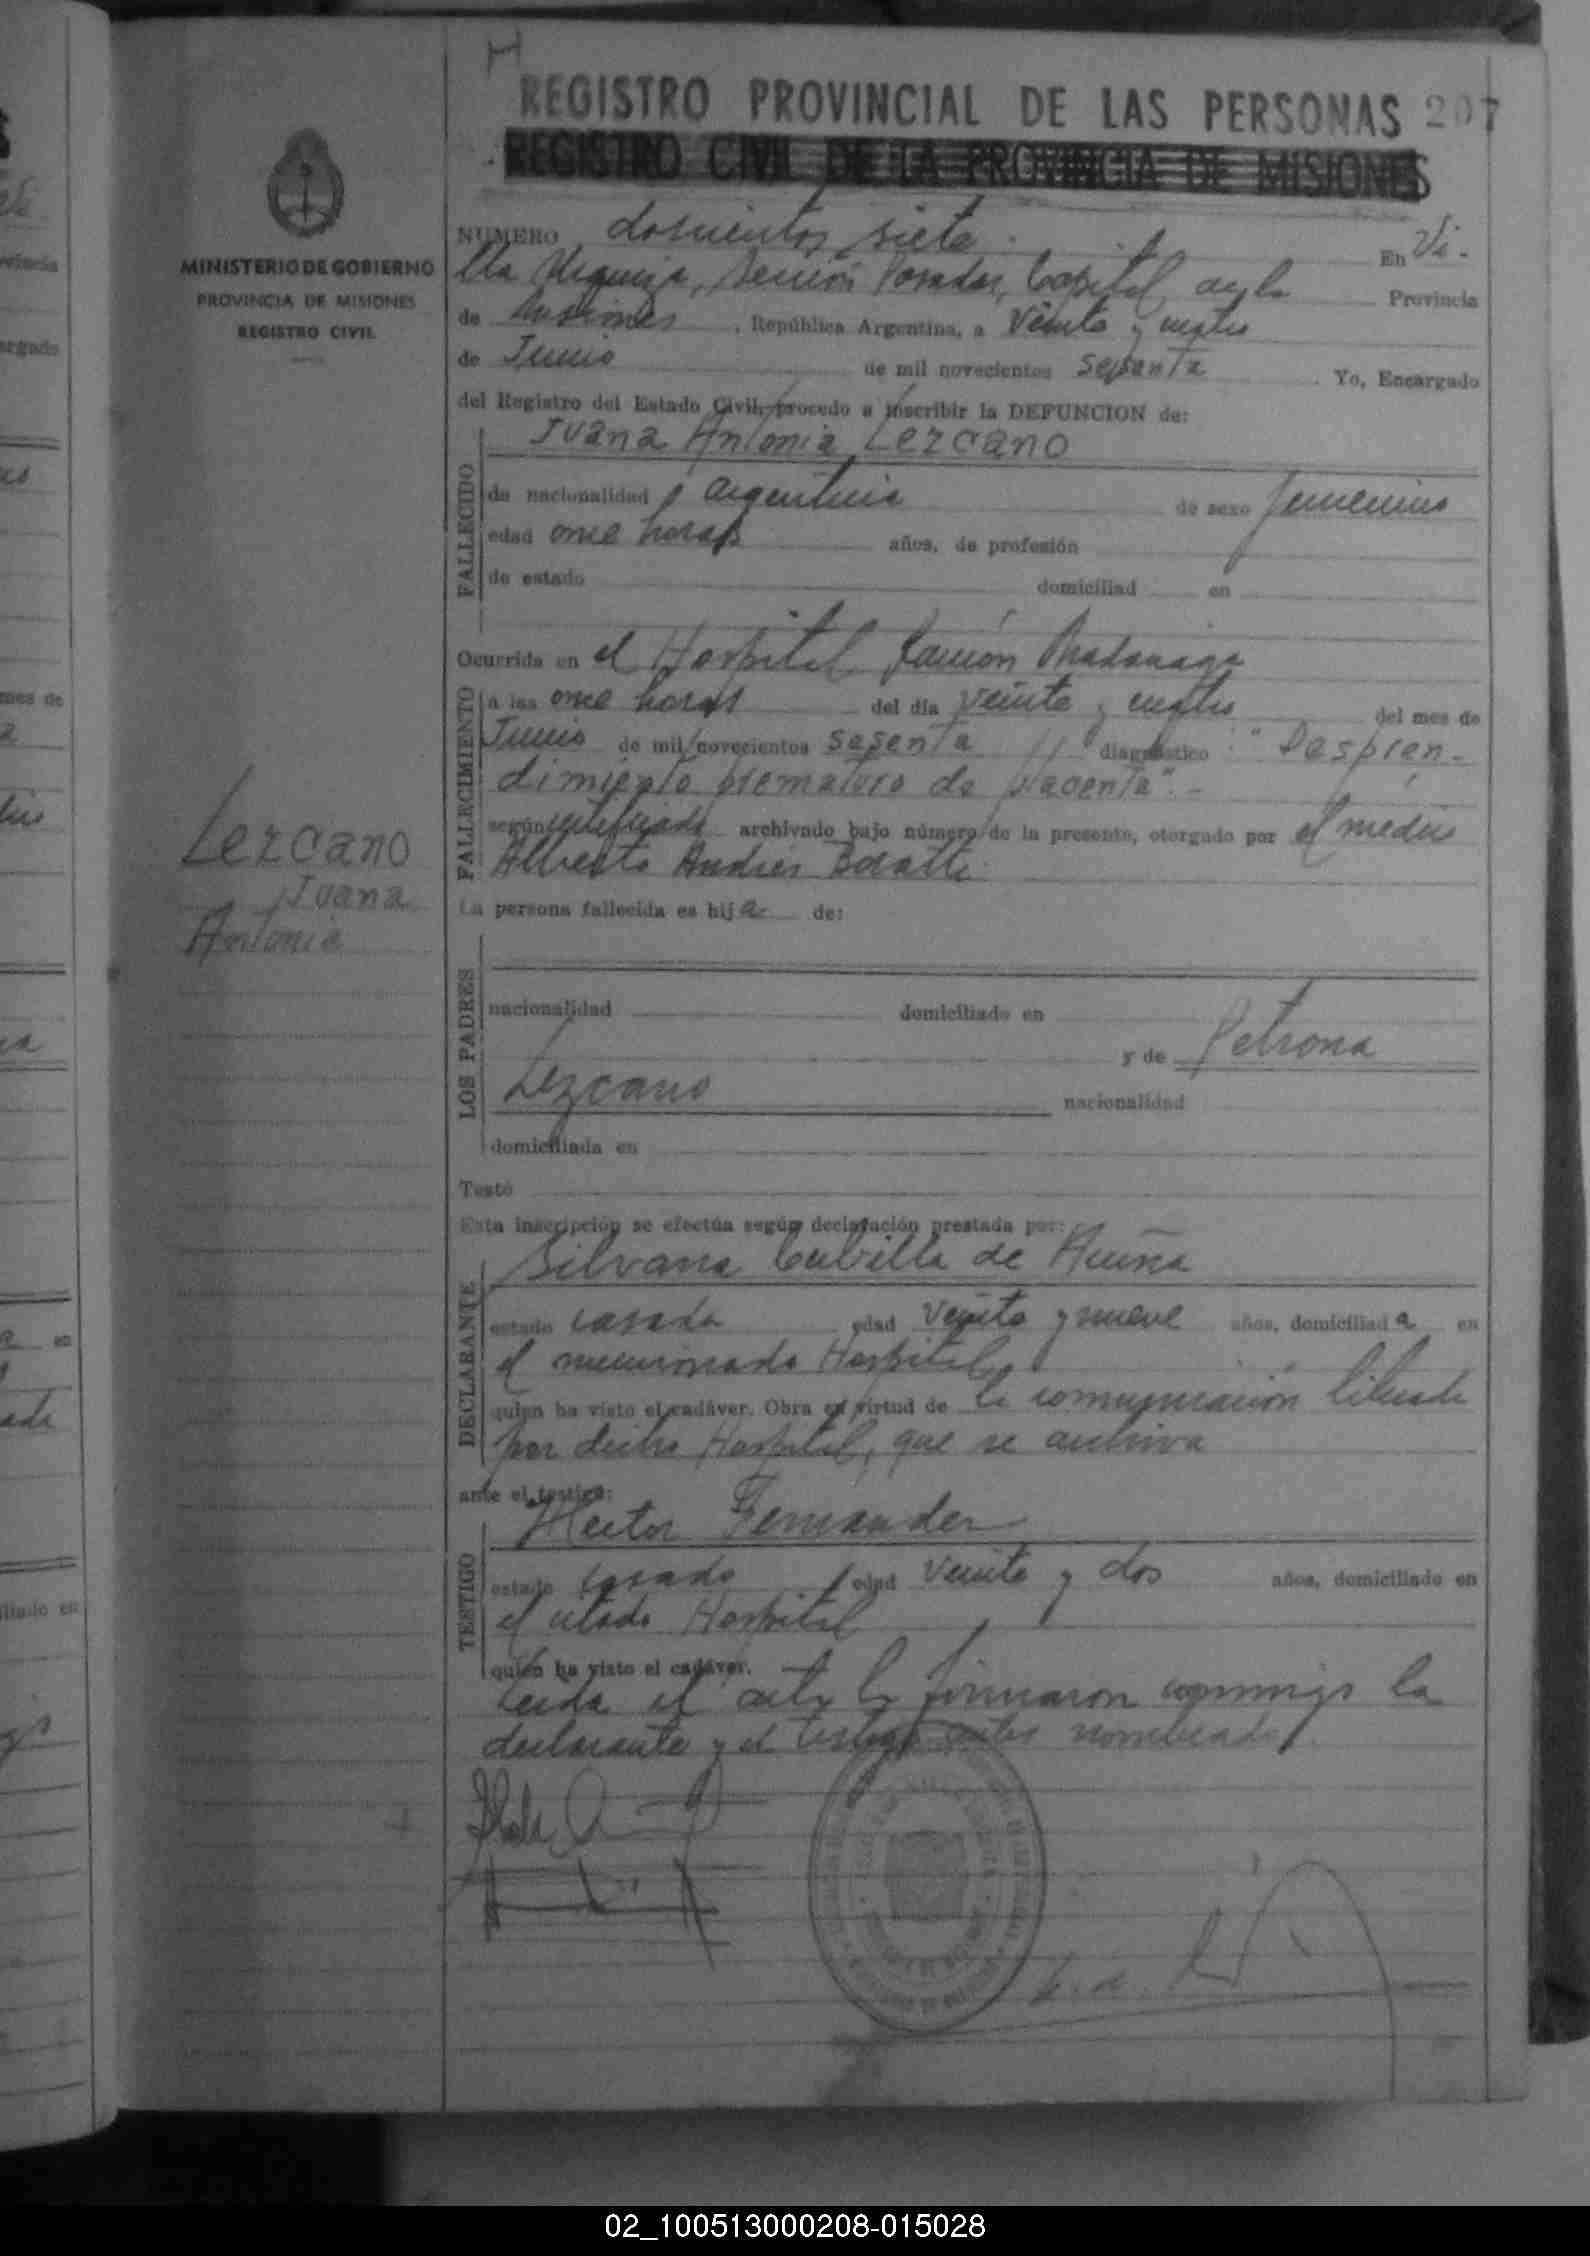 REGISTRO PROVINCIAL DE LAS PERSONAS 207
REGISTRO CIVIL DE LA PROVINCIA DE MISIONES
MINISTERIO DE GOBIERNO
PROVINCIA DE MISIONES
REGISTRO CIVIL
NUMERO doscientos siete. En Vi-
lla Urquiza, Sección Posadas, Capital de la Provincia
de Misiones, República Argentina, a Veinte y cuatro
de Junio de mil novecientos sesenta. Yo, Encargado
del Registro del Estado Civil, procedo a inscribir la DEFUNCION de:
Juana Antonia Lezcano
FALLECIDO
de nacionalidad argentina de sexo femenino
edad once horas años, de profesión
de estado domiciliad en
Ocurrida en el Hospital Ramón Madariaga
FALLECIMIENTO
a las once horas del día veinte y cuatro del mes de
Junio de mil novecientos sesenta diagnóstico "Despren-
dimiento prematuro de placenta".-
según certificado archivado bajo número de la presente, otorgado por el médico
Alberto Andrés
Lezcano
Juana
Antonia
La persona fallecida es hija de:
LOS PADRES
nacionalidad domiciliado en
y de Petrona
Lezcano nacionalidad
domiciliada en
Testó
Esta inscripción se efectúa según declaración prestada por:
Silvana Cubilla de Acuña
DECLARANTE
estado casada edad veinte y nueve años, domiciliada en
el mencionado Hospital
quien ha visto el cadáver. Obra en virtud de la comunicación librada
por dicho Hospital, que se archiva
ante el testigo:
Hector Fernandez
TESTIGO
estado casado edad veinte y dos años, domiciliado en
el citado Hospital
quien ha visto el cadáver.
Leida el acta la firmaron conmigo la
declarante y el testigo antes nombrado.
02_100513000208-015028